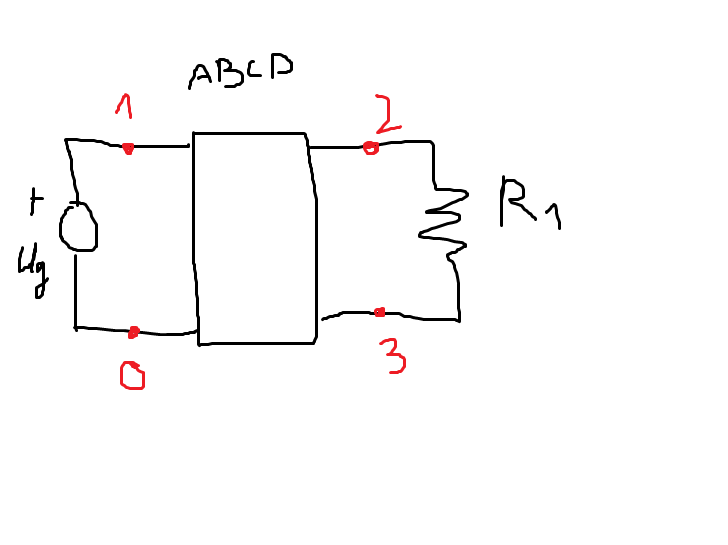 ABCD
1
2
+
Ug
R1
0
3